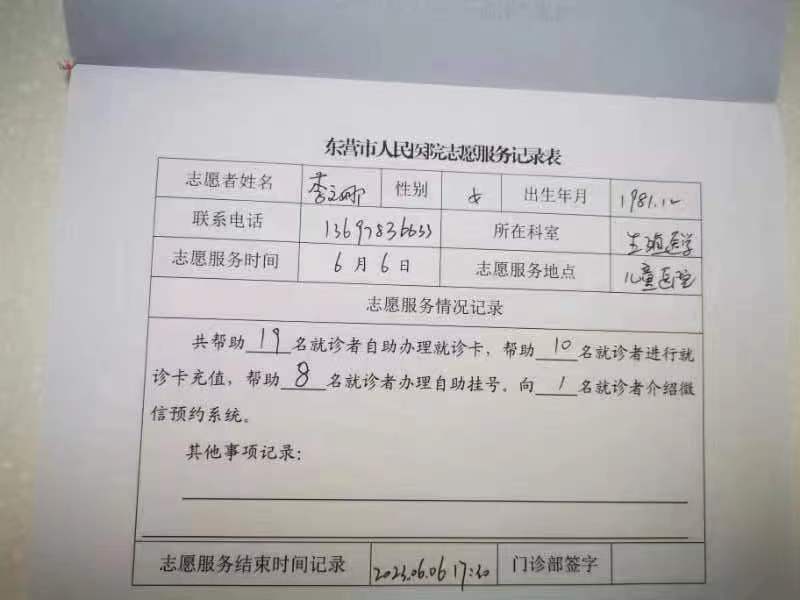 东营市人民医院志愿服务记录表
志愿者姓名 李立娜 性别 女 出生年月 1981.12
联系电话 13697836633 所在科室 生殖医学
志愿服务时间 6月6日 志愿服务地点 儿童医院
志愿服务情况记录
共帮助19名就诊者自助办理就诊卡，帮助10名就诊者进行就
诊卡充值，帮助8名就诊者办理自助挂号。向1名就诊者介绍微
信预约系统。
其他事项记录：
志愿服务结束时间记录 2023.06.06 17:30 门诊部签字